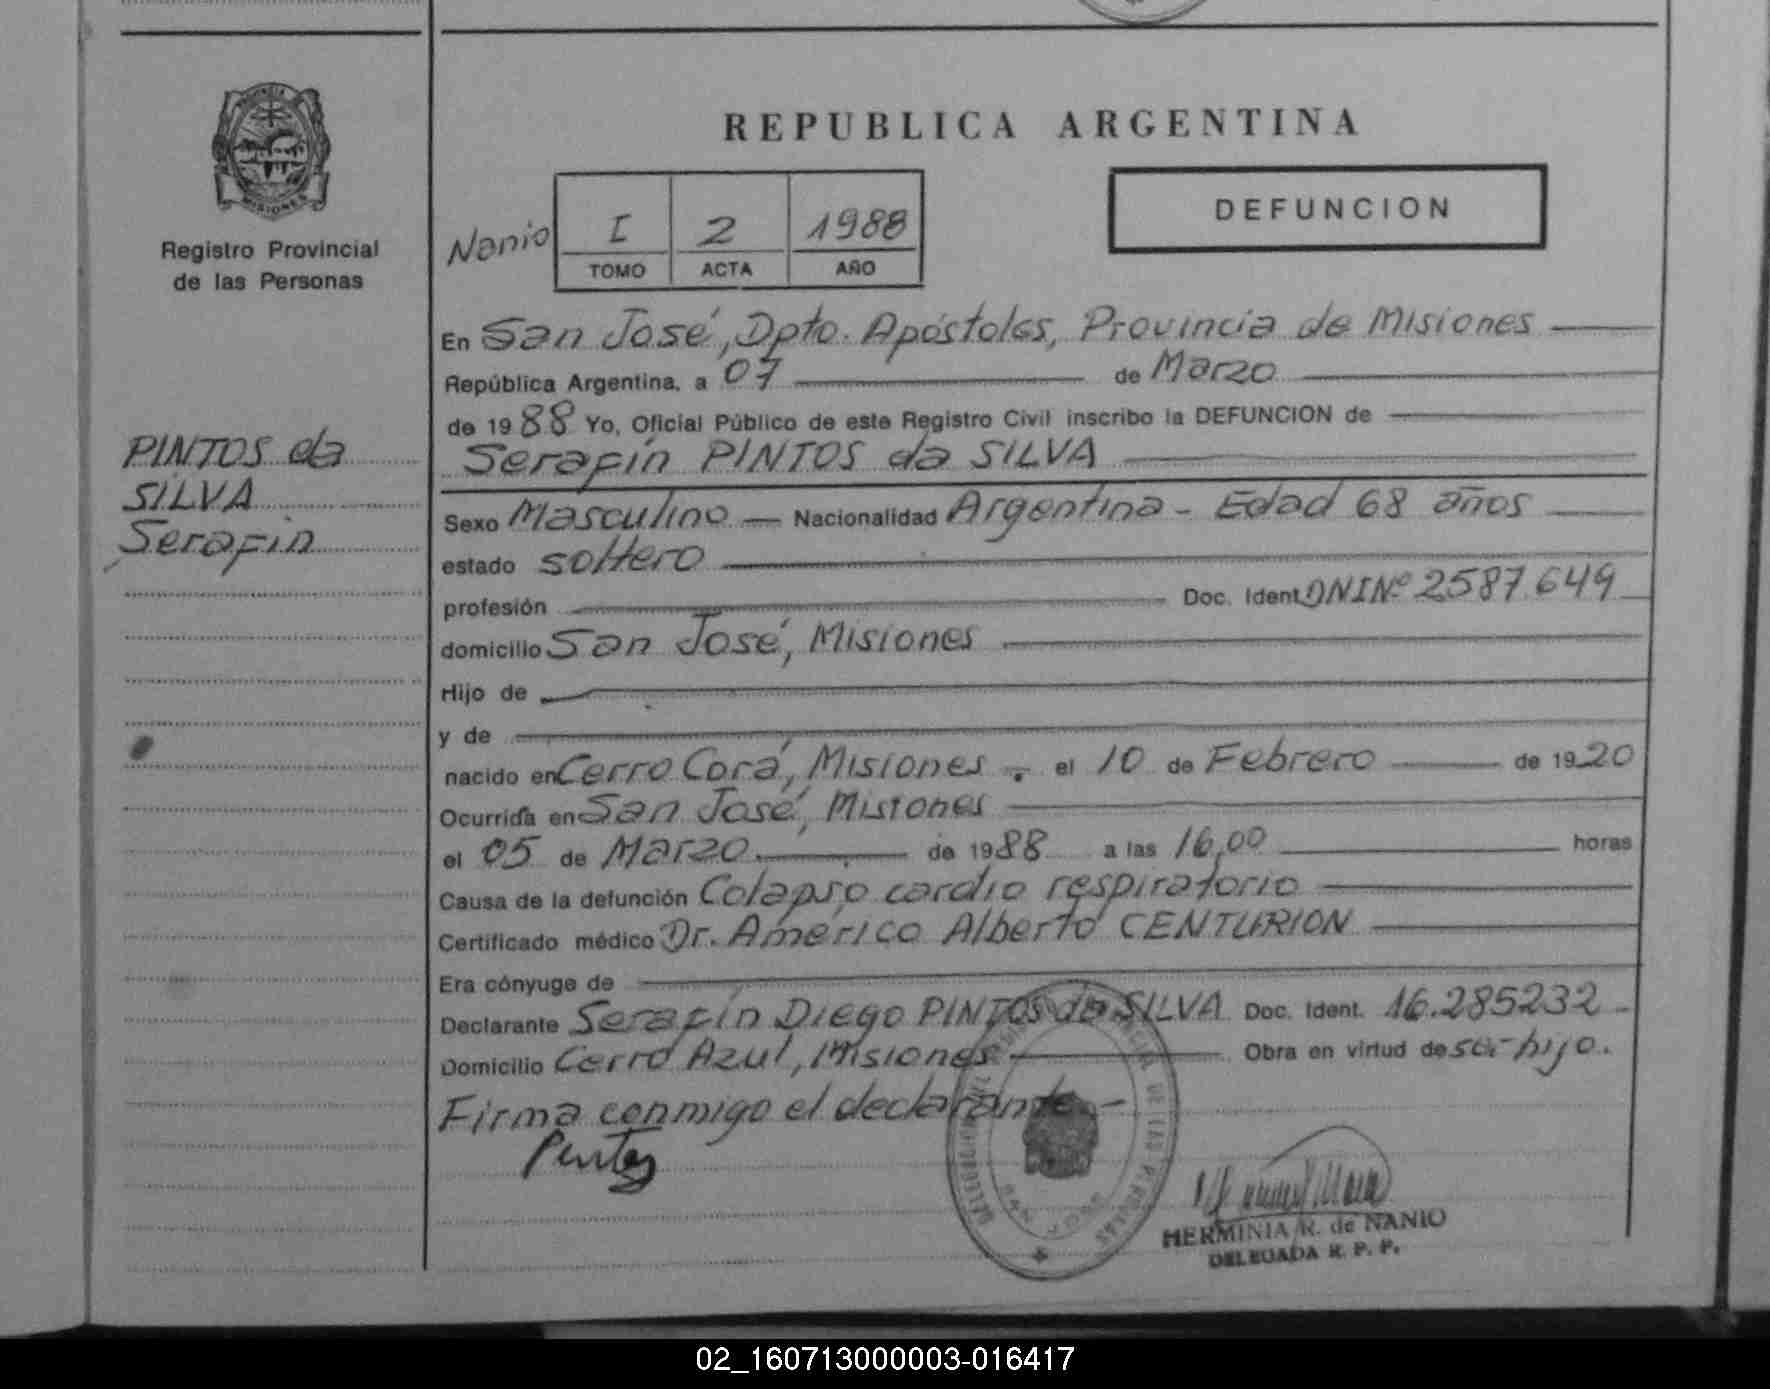 PROVINCIA
MISIONES
Registro Provincial
de las Personas
PINTOS da
SILVA
Serafín
REPUBLICA ARGENTINA
DEFUNCION
Nanio
I 2 1988
TOMO ACTA AÑO
En San José, Dpto. Apóstoles, Provincia de Misiones
República Argentina, a 07 de Marzo
de 1988 Yo, Oficial Público de este Registro Civil inscribo la DEFUNCION de
Serafín PINTOS da SILVA
Sexo Masculino — Nacionalidad Argentina - Edad 68 años
estado soltero
profesión Doc. Ident. DNI Nº 2587.649
domicilio San José, Misiones
Hijo de
y de
nacido en Cerro Corá, Misiones - el 10 de Febrero de 1920
Ocurrida en San José, Misiones
el 05 de Marzo de 1988 a las 16,00 horas
Causa de la defunción Colapso cardio respiratorio
Certificado médico Dr. Américo Alberto CENTURION
Era cónyuge de
Declarante Serafín Diego PINTOS da SILVA Doc. Ident. 16.285232 -
Domicilio Cerro Azul, Misiones Obra en virtud de ser hijo.
Firma conmigo el declarante. -
HERMINIA R. de NANIO
DELEGADA R. P. P.
02_160713000003-016417